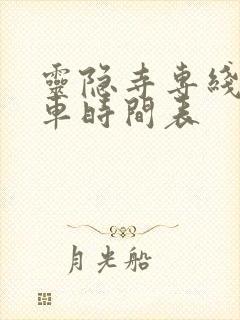 靈隐寺専綫
車時間表
月光船